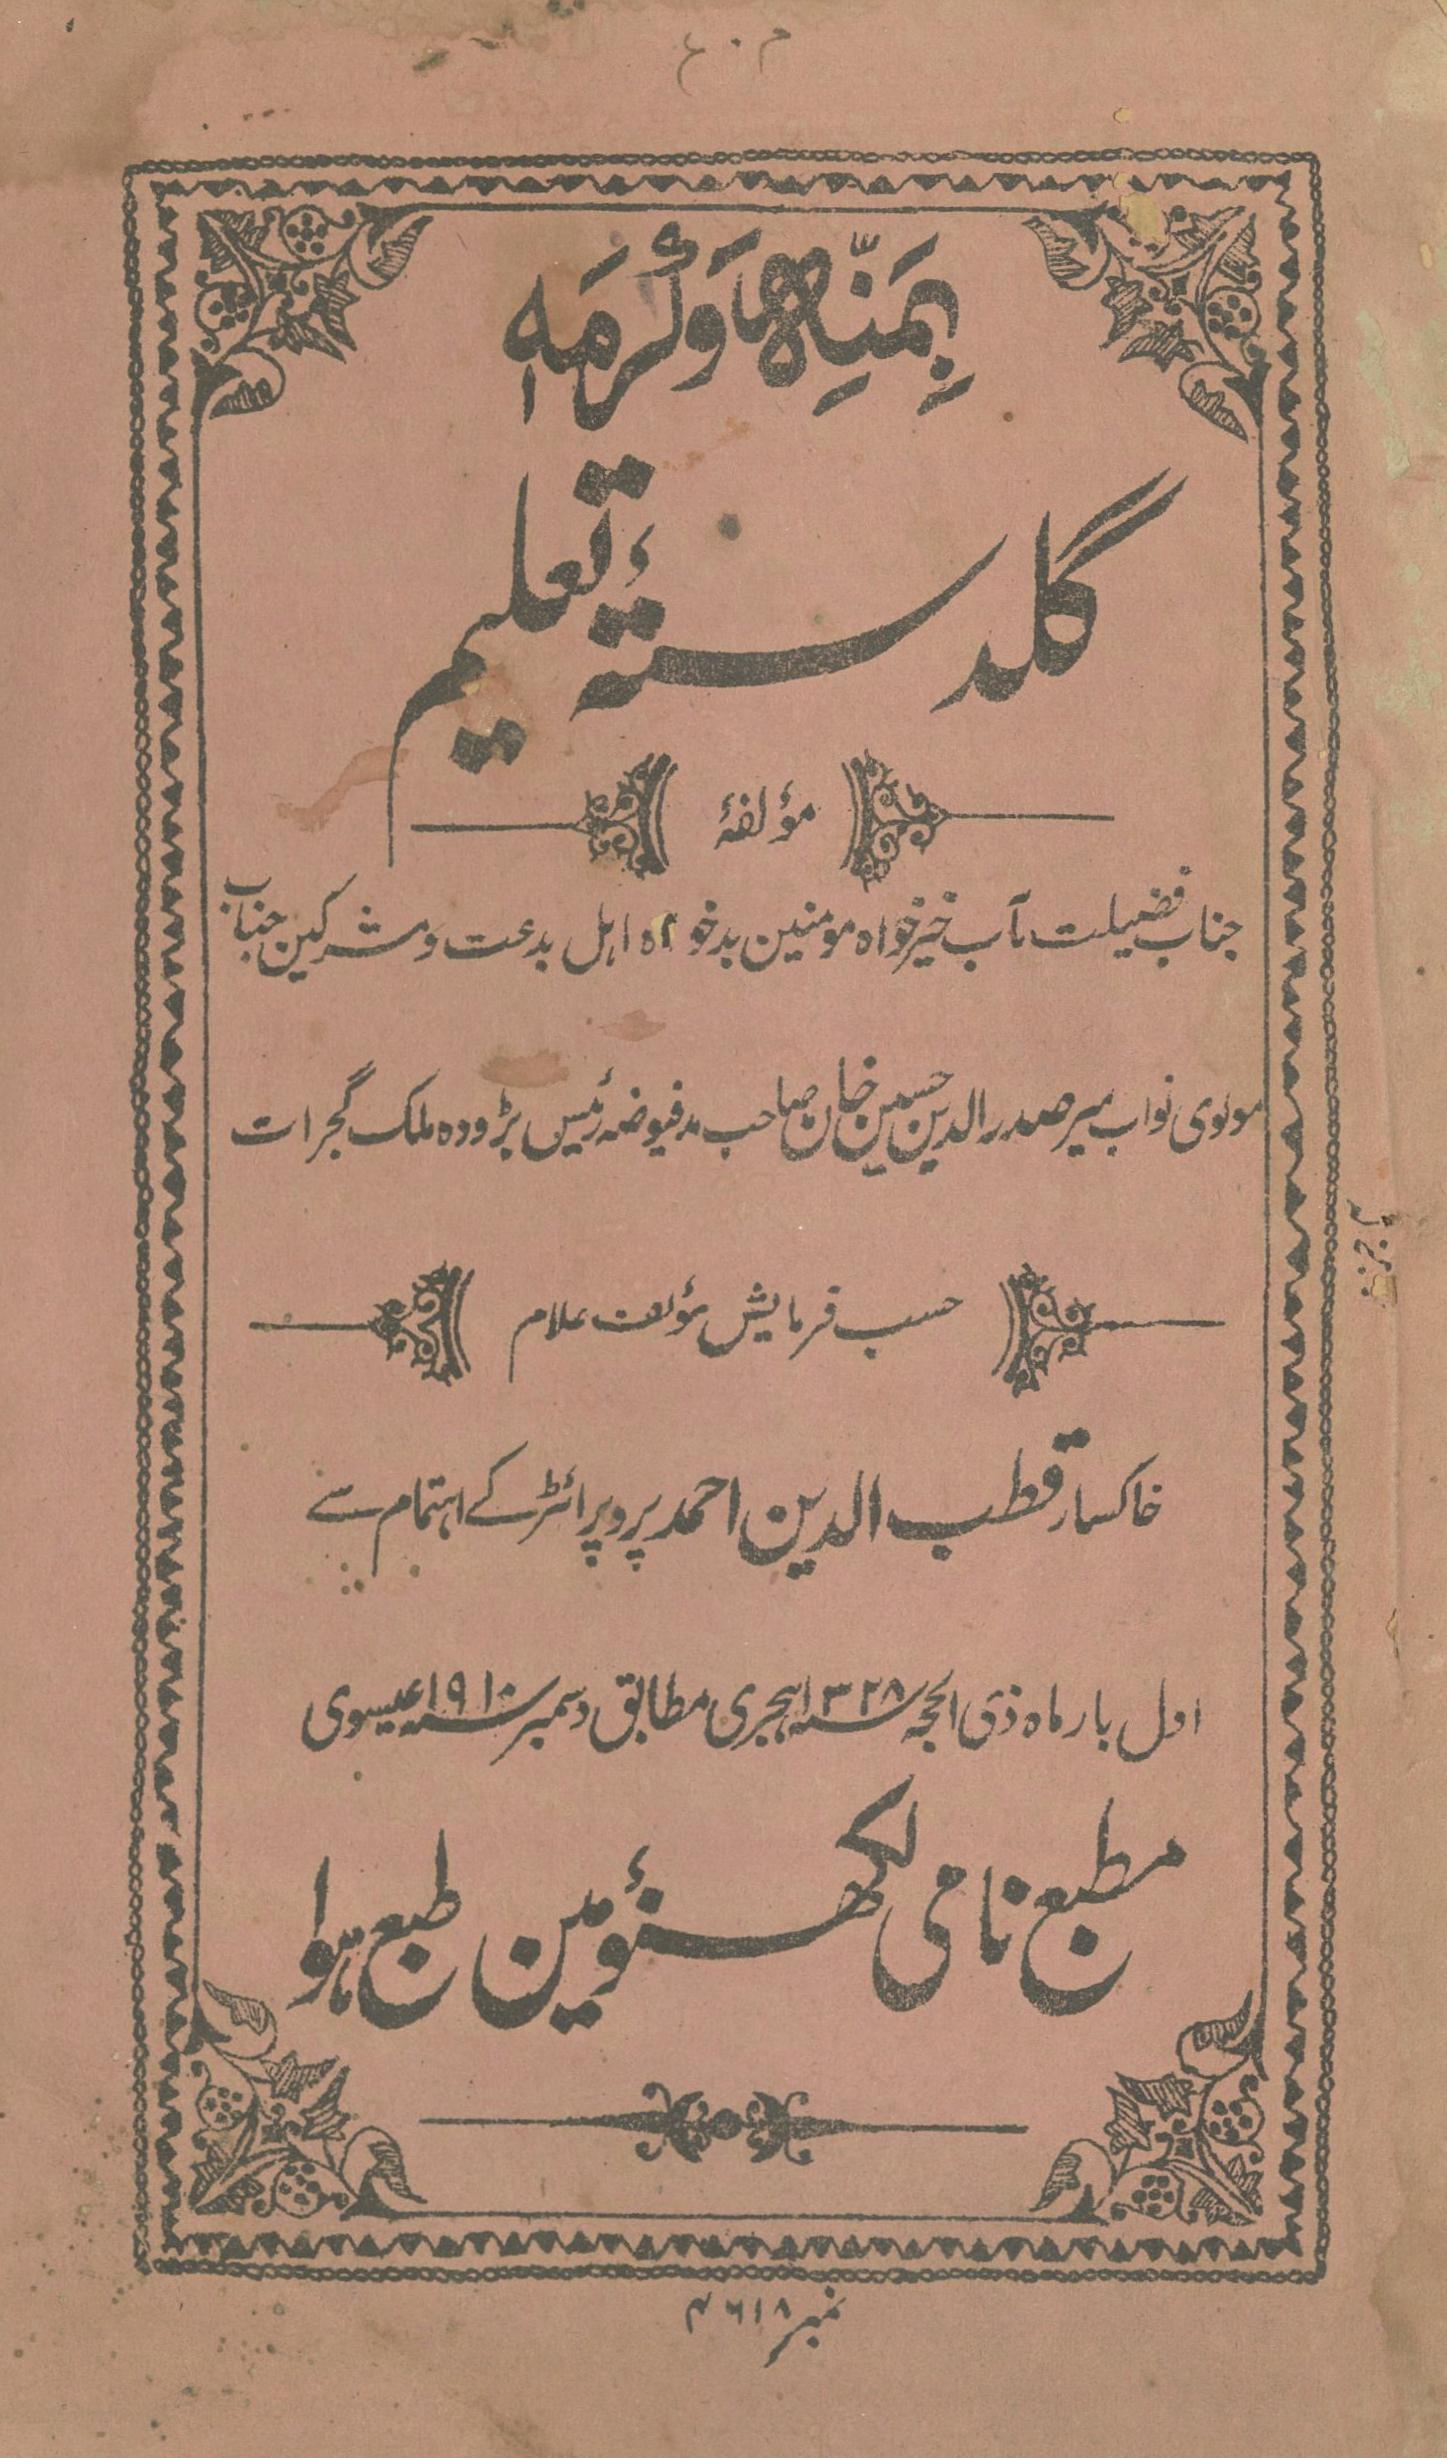 م ۰ ع
بِمَنِّہٖ وَکَرَمِہٖ
گلدستۂ تعلیم
مؤلفۂ
جناب فضیلت مآب خیرخواہ مومنین بدخواہ اہل بدعت و مشرکین جناب
مولوی نواب میر صدر الدین حسین خان صاحب مدفیوضہ رئیس بڑودہ ملک گجرات
حسب فرمایش مؤلف علام
خاکسار قطب الدین احمد پروپرائٹر کے اہتمام سے
اول بار ماہ ذی الحجہ سنہ ۱۳۲۸ ہجری مطابق دسمبر سنہ ۱۹۱۰ عیسوی
مطبع نامی لکھنؤ مین طبع ہوا
نمبر ۴۶۱۸